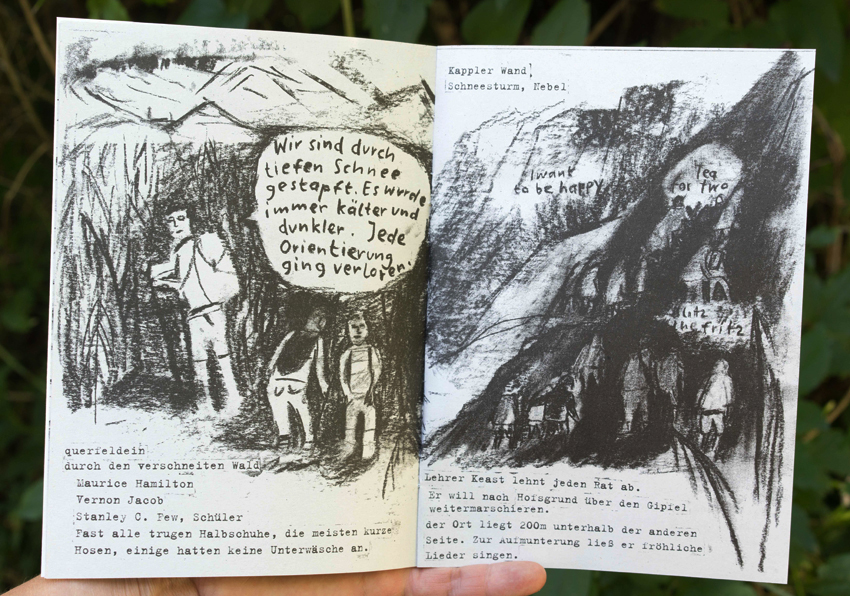 Wir sind durch
tiefen Schnee
gestapft. Es wurde
immer kälter und
dunkler. Jede
Orientierung
ging verloren.
querfeldein
durch den verschneiten Wald
Maurice Hamilton
Vernon Jacob
Stanley C. Few, Schüler
Fast alle trugen Halbschuhe, die meisten kurze
Hosen, einige hatten keine Unterwäsche an.
Kappler Wand,
Schneesturm, Nebel
I want
to be happy
Tea
for two
Blitz
the fritz
Lehrer Keast lehnt jeden Rat ab.
Er will nach Hofsgrund über den Gipfel
weitermarschieren.
der Ort liegt 200m unterhalb der anderen
Seite. Zur Aufmunterung ließ er fröhliche
Lieder singen.